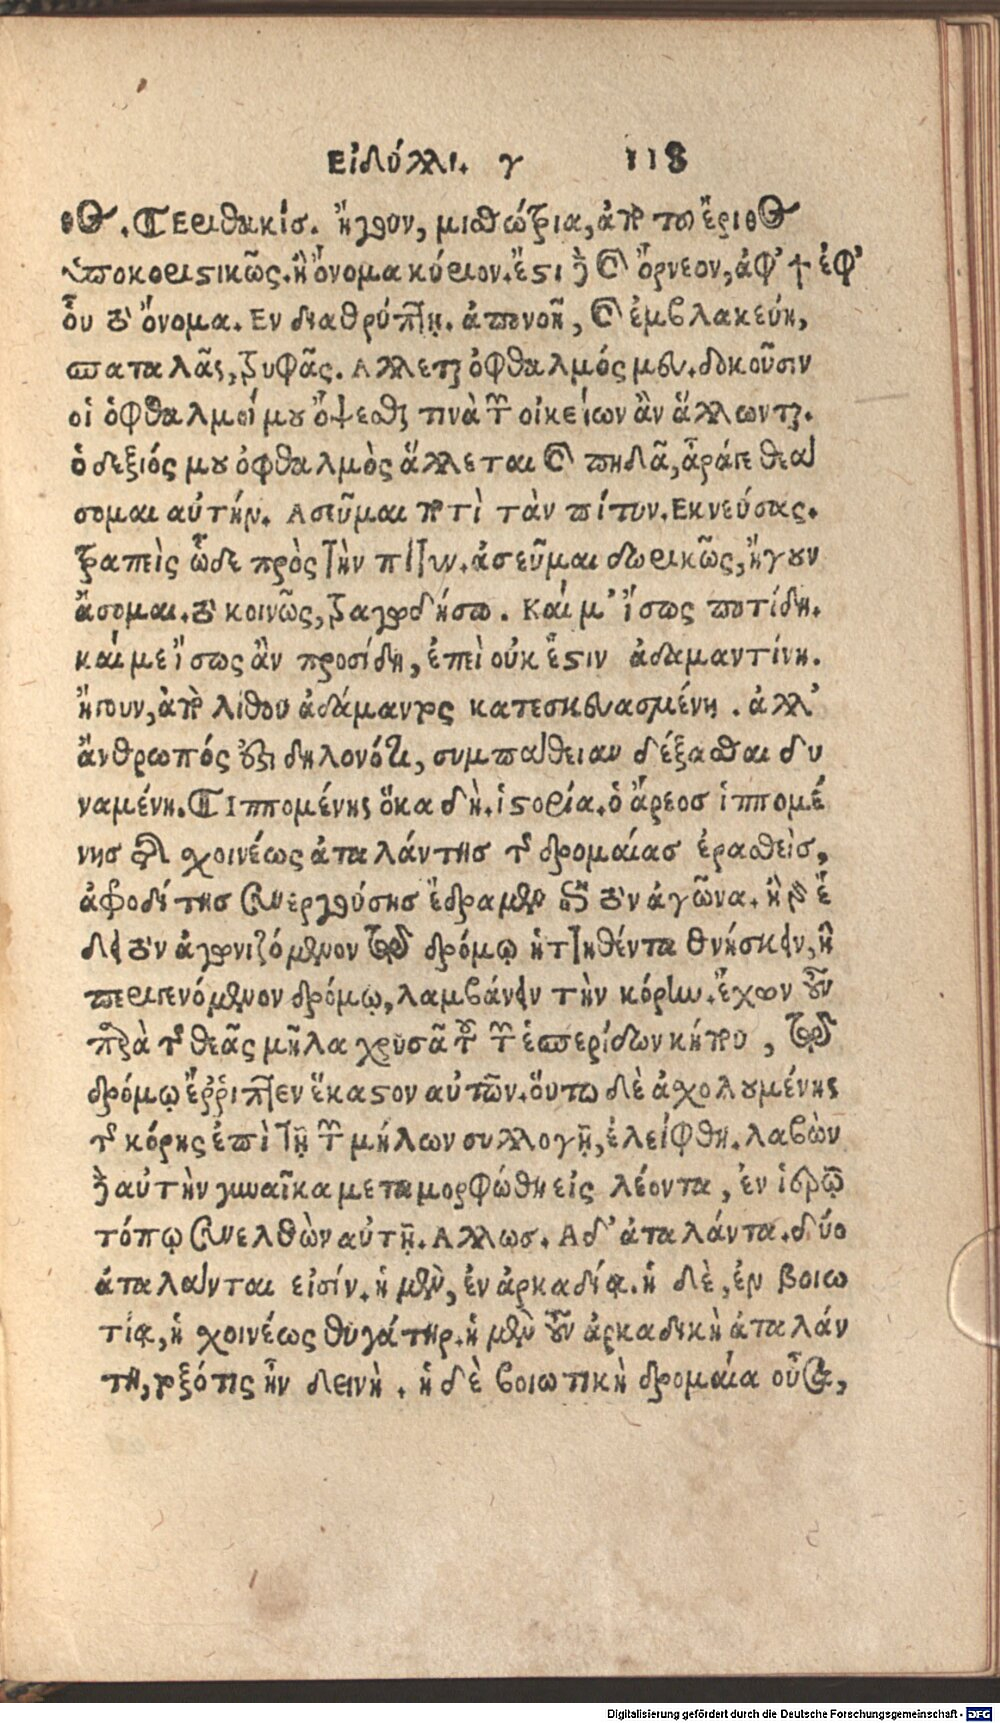 Εἰδύλλι. γ 118
θος. ¶ Εριθακίσ. ἤγουν, μισθώτρια, ἀπὸ τοῦ ἔριθος
ὑποκοριστικῶς. ἢ ὄνομα κύριον. ἔστι δὲ καὶ ὄρνεον, ἀφ' ἐφ'
οὗ τὸ ὄνομα. Εν διαθρύπτῃ. ἀπονοῇ, καὶ ἐμβλακεύῃ,
σπαταλᾷς, τρυφᾷς. Αλλεται ὀφθαλμός μευ. δοκοῦσιν
οἱ ὀφθαλμοί μου ὄψεσθαι τινὰ τῶν οἰκείων ἂν ἅλλωνται.
ὁ δεξιός μου ὀφθαλμὸς ἅλλεται καὶ πηδᾷ, ἆράγε θεά
σομαι αὐτήν. Ασεῦμαι ποτὶ τὰν πίτυν. Εκνεύσας.
τραπεὶς ὧδε πρὸς τὴν πίτυν. ἀσεῦμαι δωρικῶς, ἤγουν
ἄσομαι. τὸ κοινῶς, τραγωδήσω. Καί μ' ἴσως ποτίδῃ.
καί με ἴσως ἂν προσίδῃ, ἐπεὶ οὐκ ἔστιν ἀδαμαντίνη.
ἤγουν, ἀπὸ λίθου ἀδάμαντος κατεσκευασμένη. ἀλλ'
ἄνθρωπός ἐστι δηλονότι, συμπάθειαν δέξασθαι δυ
ναμένη. ¶ Ιππομένης ὅκα δὴ. ἱστορία. ὁ ἄρεοσ ἱππομέ
νησ διὰ σχοινέως ἀταλάντησ τῆς δρομαίας ἐρασθεὶς,
ἀφροδίτησ συνεργούσησ ἔδραμεν εἰς τὸν ἀγῶνα. ἢ γὰρ ἔ
δει τὸν ἀγωνιζόμενον τῷ δρόμῳ ἡττηθέντα θνήσκειν, ἢ
περιγενόμενον δρόμῳ, λαμβάνειν τὴν κόρην. ἔχων οὖν
παρὰ τῆς θεᾶς μῆλα χρυσᾶ ἐκ τῶν ἑσπερίδων κήπου, τῷ
δρόμῳ ἔῤῥιπτεν ἕκαστον αὐτῶν. οὕτω δὲ ἀσχολουμένης
τῆς κόρης ἐπὶ τῇ τῶν μήλων συλλογῇ, ἐλείφθη. λαβὼν
δὲ αὐτὴν γυναῖκα μεταμορφώθη εἰς λέοντα, ἐν ἱερῷ
τόπῳ συνελθὼν αὐτῇ. Αλλωσ. Α δ' ἀταλάντα. δύο
ἀταλάνται εἰσίν. ἡ μὲν, ἐν ἀρκαδίᾳ. ἡ δὲ, ἐν βοιω
τίᾳ, ἡ σχοινέως θυγάτηρ. ἡ μὲν οὖν ἀρκαδικὴ ἀταλάν
τη, τοξότις ἦν δεινὴ. ἡ δὲ βοιωτικὴ δρομαία οὖσα,
Digitalisierung gefördert durch die Deutsche Forschungsgemeinschaft - DFG